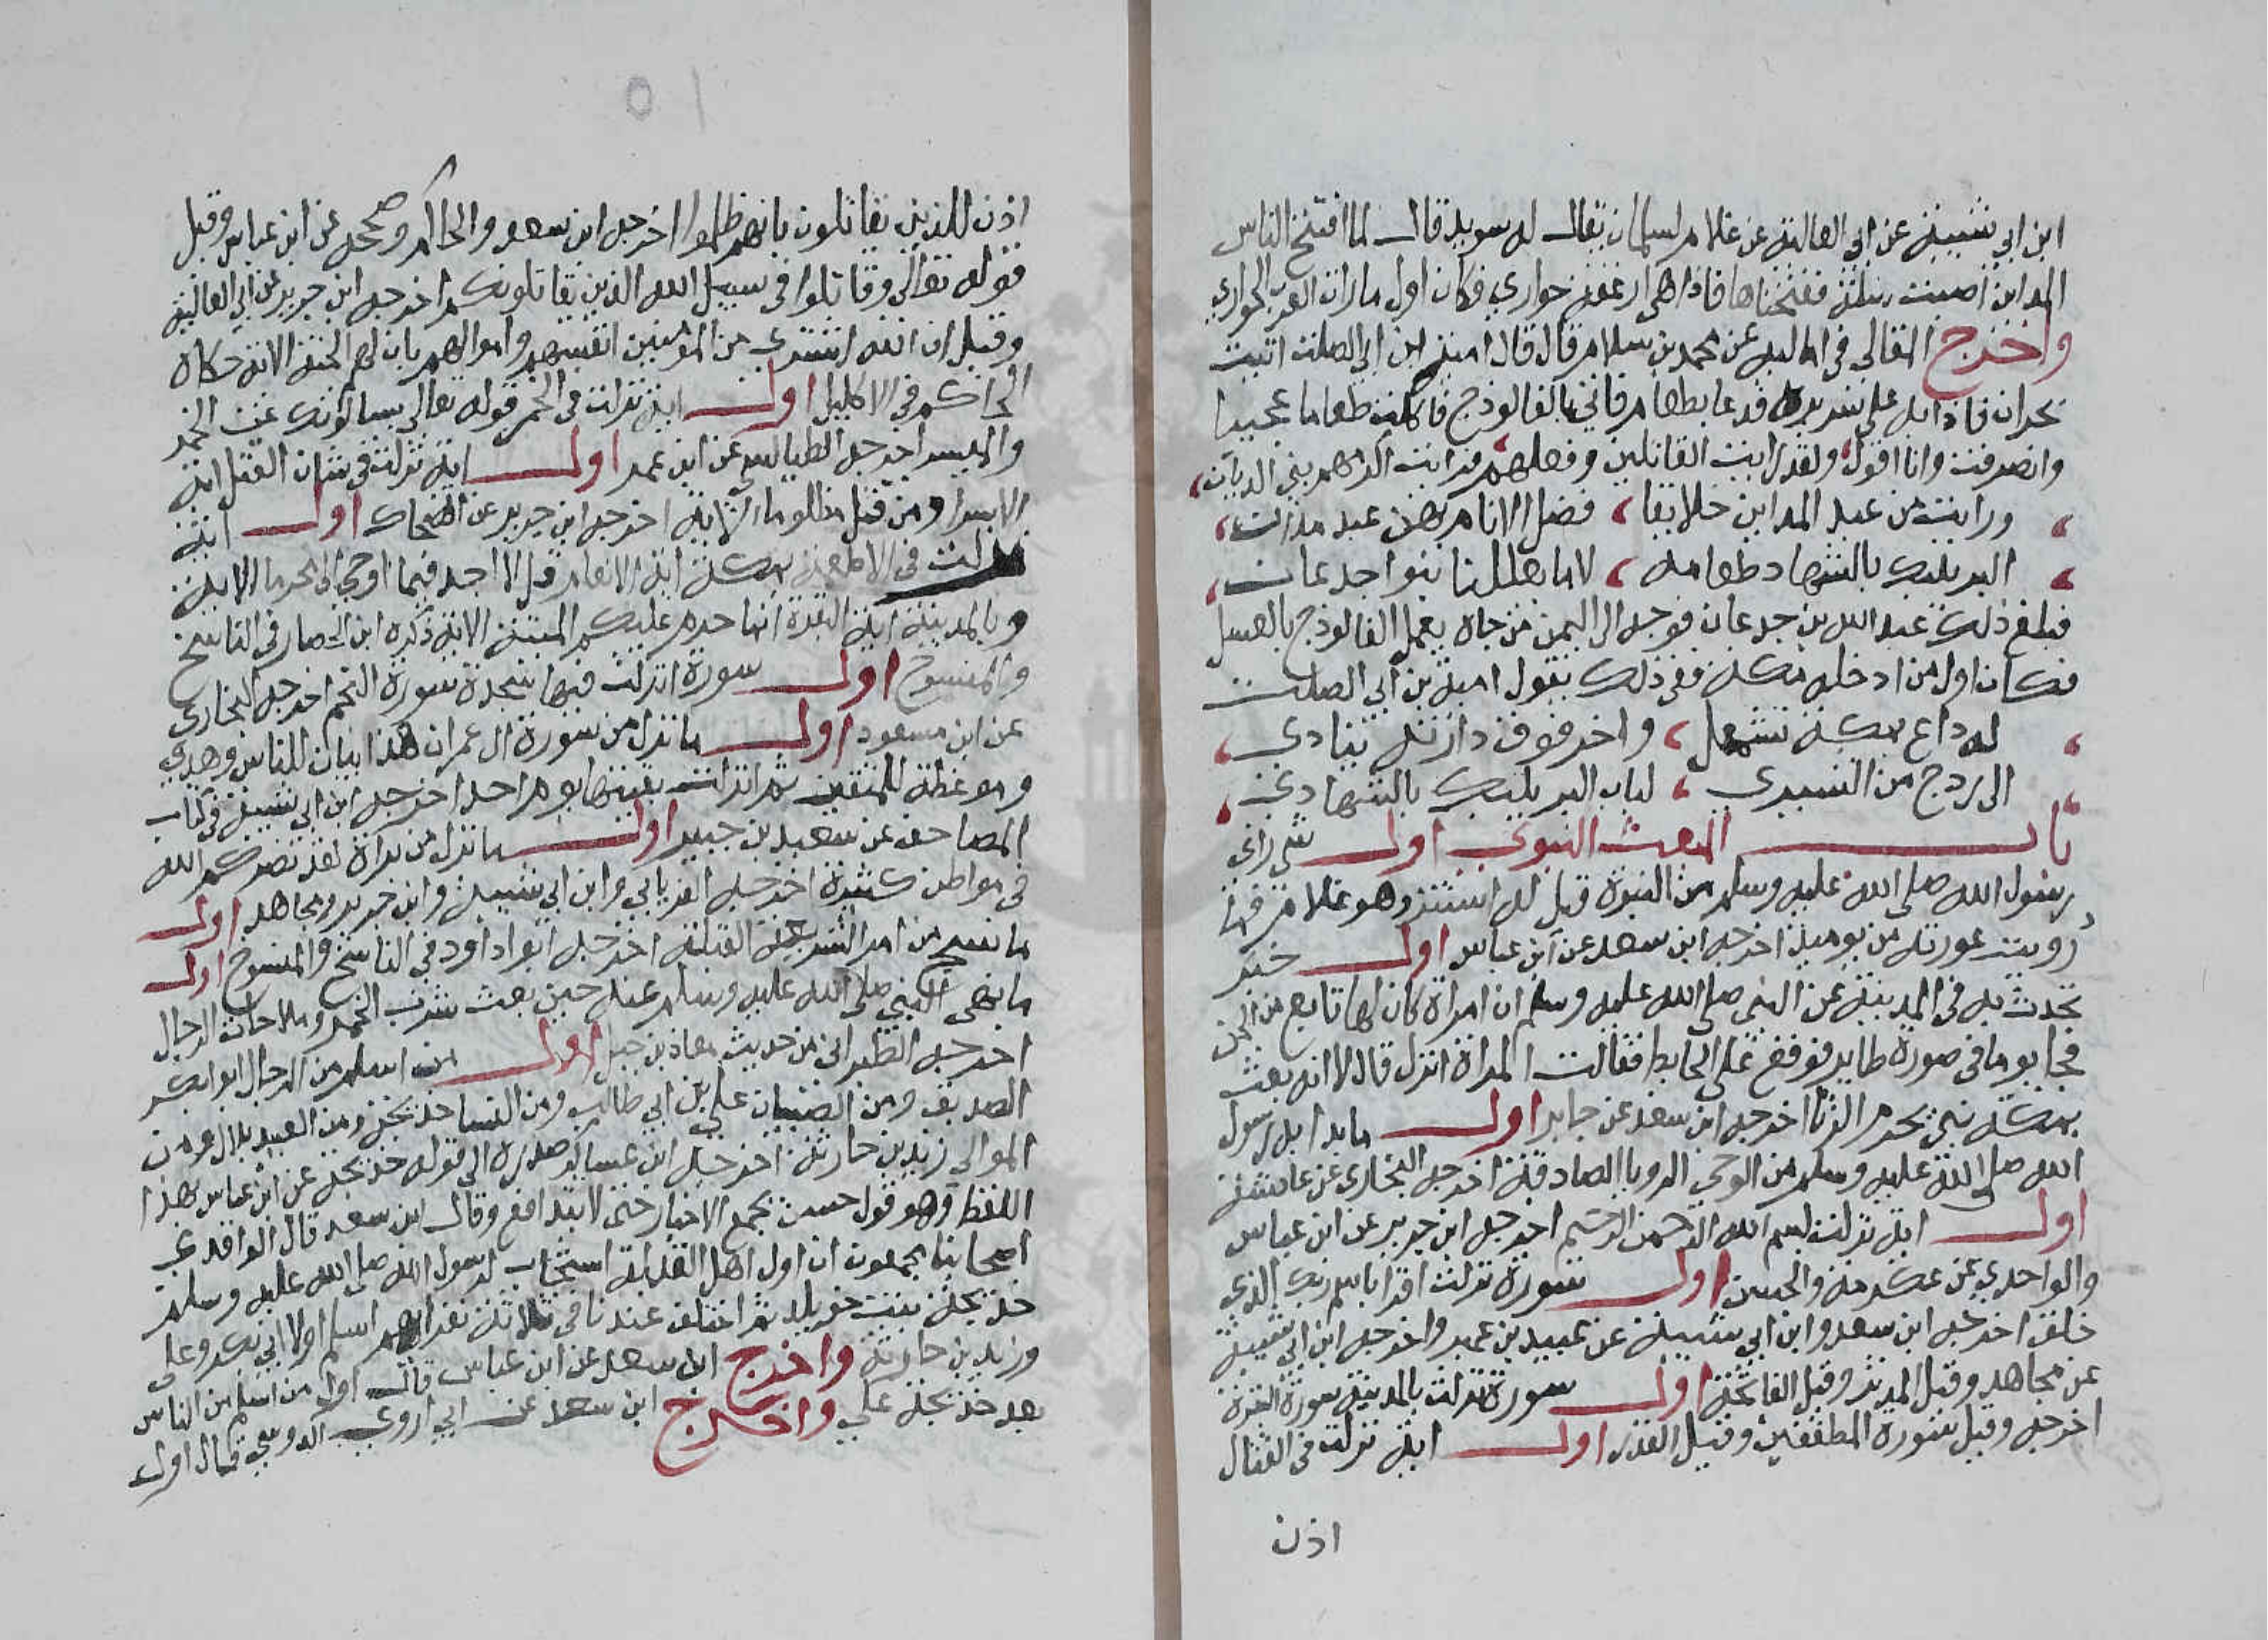 ابن ابي شيبة عن ابي العالية عن غلام لسلمان يقال له سويد قال لما افتتح الناس
المداين اصبت سلة ففتحناها فاذا هي ارغفة حواري فكان اول ما رات العرب الحواري
واخرج القالي في اماليه عن محمد بن سلام قال قال امية ابن ابي الصلت اتيت
نجران فاذا به على سريره فدعا بطعام فاتي بالفالوذج فاكلت طعاما عجيبا
وانصرفت وانا اقول ولقد رايت القائلين وفعلهم فرايت اكرمهم بني الديان
ورايت من عبد المداين خلايقا فضل الانام بهن عبد مدان
البر يلبك بالشهاد طعامه لا ما يعللنا بنو اجدعان
فبلغ ذلك عبد الله بن جدعان فوجه الى اليمن من جاه يعمل الفالوذج بالعسل
فكان اول من ادخله مكة ففي ذلك يقول امية بن ابي الصلت
له داع بمكة مشمعل واخر فوق دارته ينادي
الى ردح من الشيزي لباب البر يلبك بالشهادي
باب المبعث النبوي اول شي راى
رسول الله صلى الله عليه وسلم من النبوة قيل له استتر وهو غلام فما
رويت عورته من يوميذ اخرجه ابن سعد عن ابن عباس اول خبر
تحدث به في المدينة عن النبي صلى الله عليه وسلم ان امراة كان لها تابع من الجن
فجا يوما في صورة طاير فوقع على الحايط فقالت المراة انزل قال لا انه بعث
بمكة نبي يحرم الزنا اخرجه ابن سعد عن جابر اول ما بدا به رسول
الله صلى الله عليه وسلم من الوحي الرويا الصادقة اخرجه البخاري عن عايشة
اول اية نزلت بسم الله الرحمن الرحيم اخرجه ابن جرير عن ابن عباس
والواحدي عن عكرمة والحسن اول سورة نزلت اقرا باسم ربك الذي
خلق اخرجه ابن سعد وابن ابي شيبة عن عبيد بن عمير واخرجه ابن ابي شيبة
عن مجاهد وقيل المدثر وقيل الفاتحة اول سورة نزلت بالمدينة سورة البقرة
اخرجه وقيل سورة المطففين وقيل القدر اول اية نزلت في القتال
اذن
اذن للذين يقاتلون بانهم ظلموا اخرجه ابن سعد والحاكم وصححه عن ابن عباس وقيل
قوله تعالى وقاتلوا في سبيل الله الذين يقاتلونكم اخرجه ابن جرير عن ابي العالية
وقيل ان الله اشترى من المؤمنين انفسهم واموالهم بان لهم الجنة الاية حكاه
الحاكم في الاكليل اول اية نزلت في الخمر قوله تعالى يسالونك عن الخمر
والميسر اخرجه الطيالسي عن ابن عمر اول اية نزلت في شان القتل اية
الاسرا ومن قتل مظلوما الاية اخرجه ابن جرير عن الضحاك اول اية
نزلت في الاطعمة بمكة اية الانعام قل لا اجد فيما اوحي الي محرما الاية
وبالمدينة اية البقرة انما حرم عليكم الميتة الاية ذكره ابن الحصار في الناسخ
والمنسوخ اول سورة انزلت فيها سجدة سورة النجم اخرجه البخاري
عن ابن مسعود اول ما نزل من سورة ال عمران هذا بيان للناس وهدى
وموعظة للمتقين ثم انزلت بقيتها يوم احد اخرجه ابن ابي شيبة في كتاب
المصاحف عن سعيد بن جبير اول ما نزل من براة لقد نصركم الله
في مواطن كثيرة اخرجه الفريابي وابن ابي شيبة وابن جرير ومجاهد اول
ما نسخ من امر الشريعة القبلة اخرجه ابوا داود في الناسخ والمنسوخ اول
ما نهى النبي صلى الله عليه وسلم عنه حين بعث شرب الخمر وملاحات الرجال
اخرجه الطبراني من حديث معاذ بن جبل اول من اسلم من الرجال ابو بكر
الصديق ومن الصبيان علي بن ابي طالب ومن النسا خديجة ومن العبيد بلال ومن
الموالي زيد بن حارثة اخرجه ابن عساكر صدره الى قوله خديجة عن ابن عباس بهذا
اللفظ وهو قول حسن يجمع الاخبار حتى لا تتدافع وقال ابن سعد قال الواقدي
اصحابنا يجمعون ان اول اهل القبلة استجاب لرسول الله صلى الله عليه وسلم
خديجة بنت خويلد ثم اختلف عندنا في ثلاثة نفر ايهم اسلم اولا ابي بكر وعلى
وزيد بن حارثة واخرج ابن سعد عن ابن عباس قال اول من اسلم من الناس
بعد خديجة علي واخرج ابن سعد عن ابي اروى الدوسي قال اول